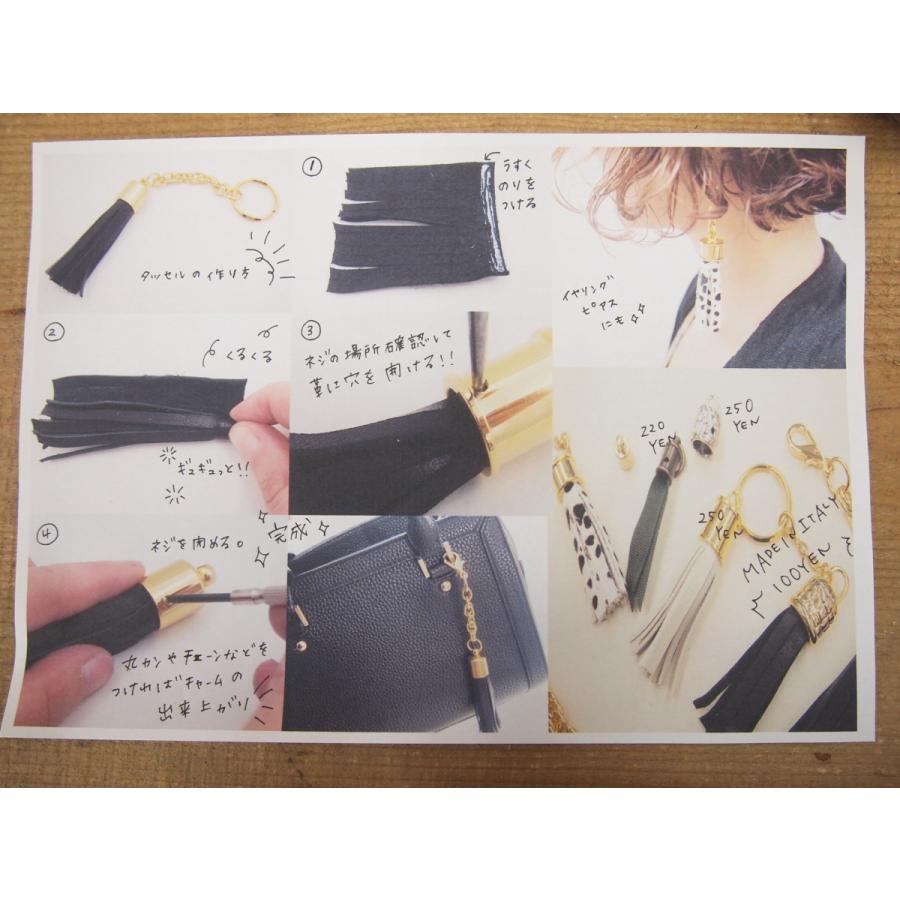 タッセルの作り方
①
うすく
のりを
つける
②
くるくる
ギュギュっと!!
③
ネジの場所確認して
革に穴を開ける!!
④
ネジを閉める。
丸カンやチェーンなどを
つければチャームの
出来上がり
完成
イヤリング
ピアス
にも
220
YEN
250
YEN
250
YEN
MADE IN ITALY
100YEN